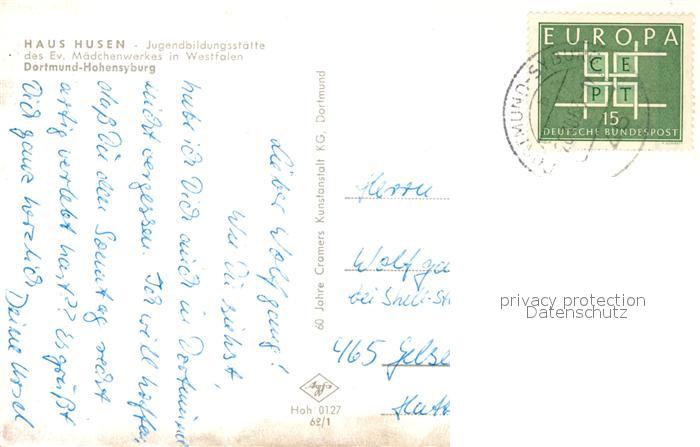 HAUS HUSEN - Jugendbildungsstätte
des Ev. Mädchenwerkes in Westfalen
Dortmund-Hohensyburg
Lieber Wolfgang!
Wie Du siehst,
habe ich Dich auch in Dortmund
nicht vergessen. Ich will hoffen,
daß Du den Sonntag recht
artig verlebt hast?? Es grüßt
Dich ganz herzlich Deine Ursel
60 Jahre Cramers Kunstanstalt KG, Dortmund
Hoh 0127
62/1
EUROPA
CE
PT
15
DEUTSCHE BUNDESPOST
DORTMUND-SYBURG
Herrn
Wolfga
bei Shell-St
465 Gelse
Hatt
privacy protection
Datenschutz